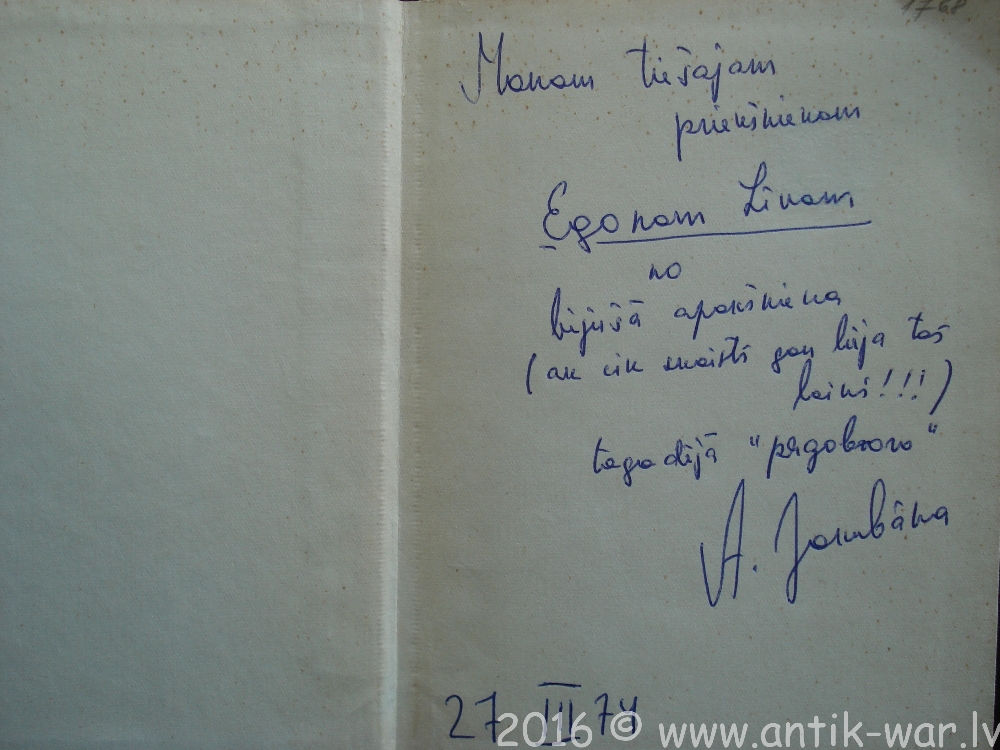 1768
Manam tiešajam
priekšniekam
Egonam Līvam
no
bijušā apakšnieka
(ak cik skaisti gan bija tas
laiks!!!)
tagadējā "
A. Jakubāna
27 III 74
2016 © www.antik-war.lv